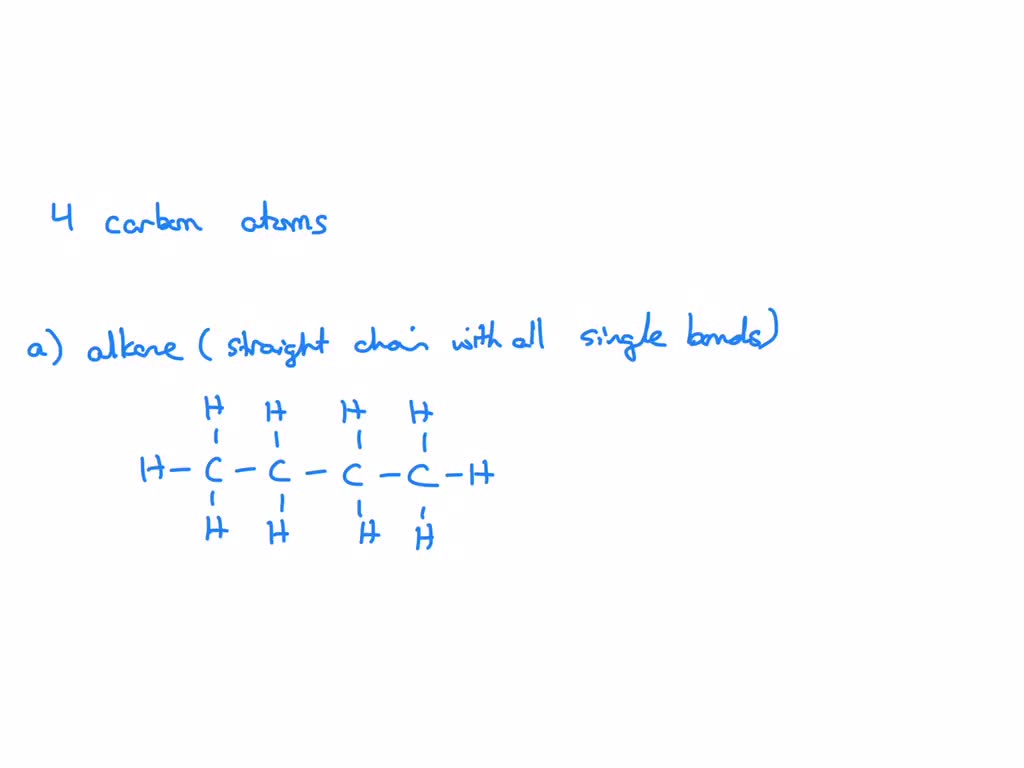 4 carbon atoms
a) alkane (straight chain with all single bonds)
H H H H
H - C - C - C - C - H
H H H H